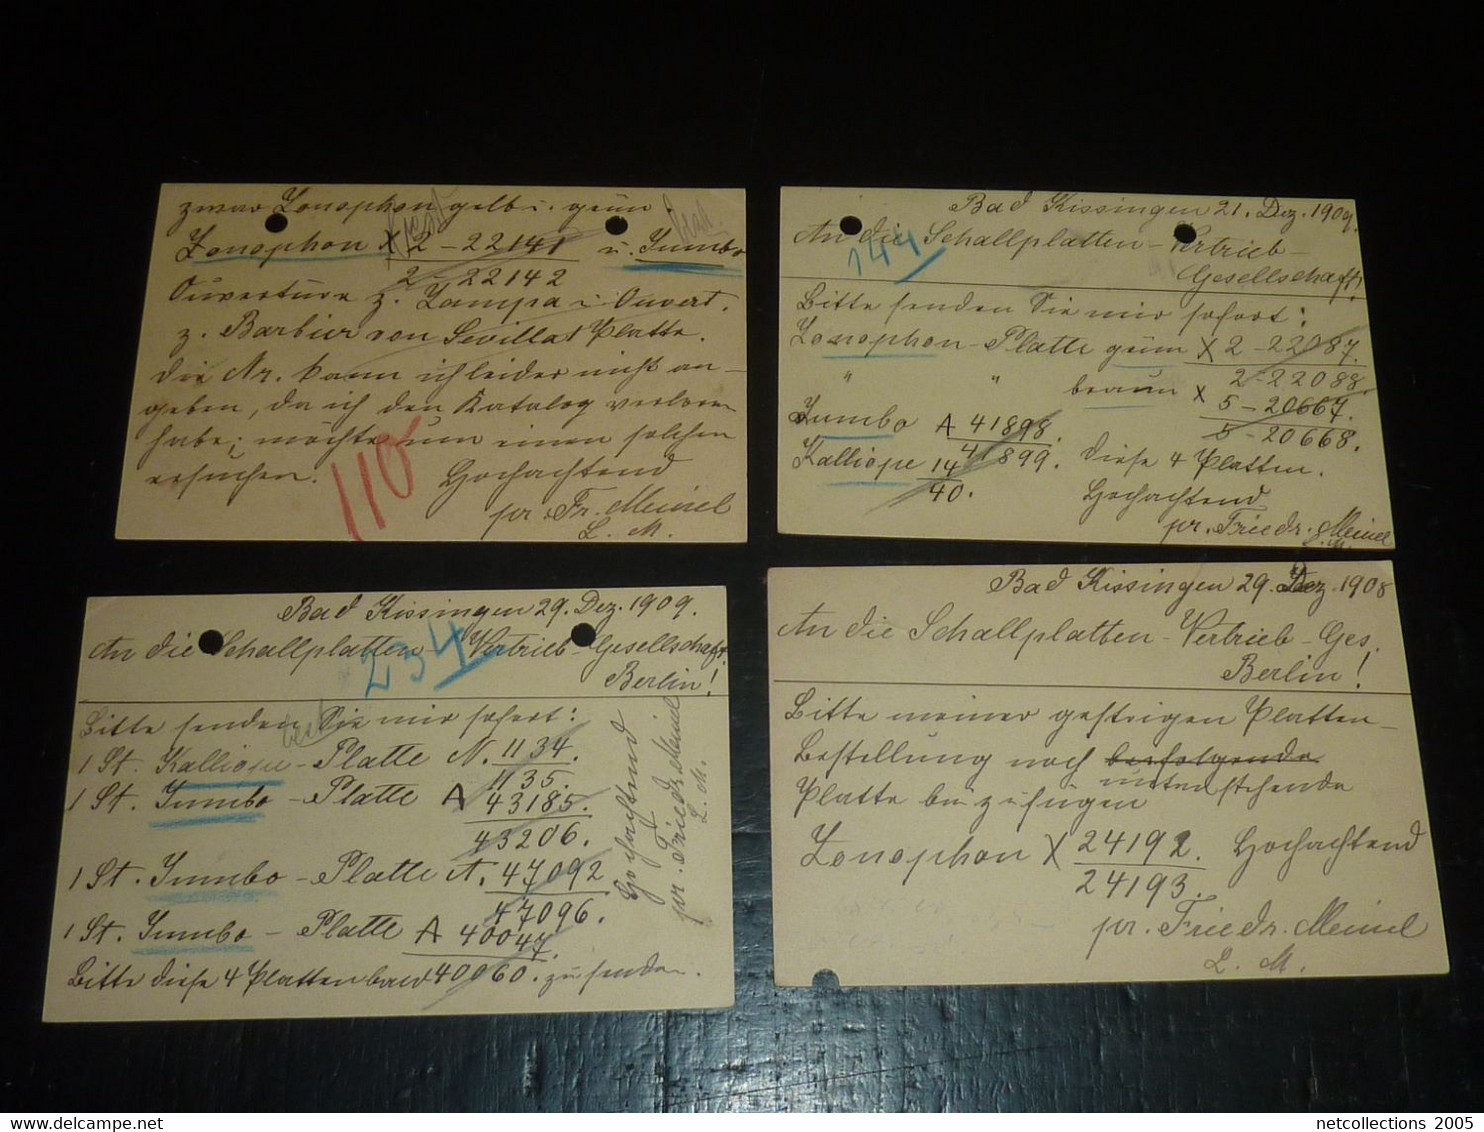 zwar Zonophon gelb u. grün
Zonophon X 2-22141 u. Jumbo
2-22142
Ouverture z. Zampa u. Ouvert.
z. Barbier von Sevilla 1 Platte.
die Nr. kann ich leider nicht an-
geben, da ich den Katalog verloren
habe; möchte um einen solchen
ersuchen. Hochachtend
110
pr. Fr. Meinel
L. M.
Bad Kissingen 21. Dez. 1909.
An die Schallplatten-Vertrieb-
144
Gesellschaft!
Bitte senden Sie mir sofort:
Zonophon-Platte grün X 2-22087.
2-22088
" " braun X 5-20667.
5-20668.
Jumbo A 41898.
41899. diese 4 Platten.
Kalliope 14
40.
Hochachtend
pr. Friedr. Meinel
L. M.
Bad Kissingen 29. Dez. 1909.
An die Schallplatten-Vertrieb-Gesellschaft
234
Berlin!
Bitte senden Sie mir sofort:
1 St. Kalliope-Platte N. 1134.
1135.
1 St. Jumbo-Platte A 43185.
43206.
1 St. Jumbo-Platte A. 47092
47096.
1 St. Jumbo-Platte A 40047.
Bitte diese 4 Platten bald 40060. zu senden.
Hochachtend
pr. Friedr. Meinel
L. M.
Bad Kissingen 29. Dez. 1908
An die Schallplatten-Vertrieb-Ges.
Berlin!
Bitte meiner gestrigen Platten-
Bestellung noch berfolgende
untenstehende
Platte beizufügen
Zonophon X 24192. Hochachtend
24193.
pr. Friedr. Meinel
L. M.
netcollections 2005